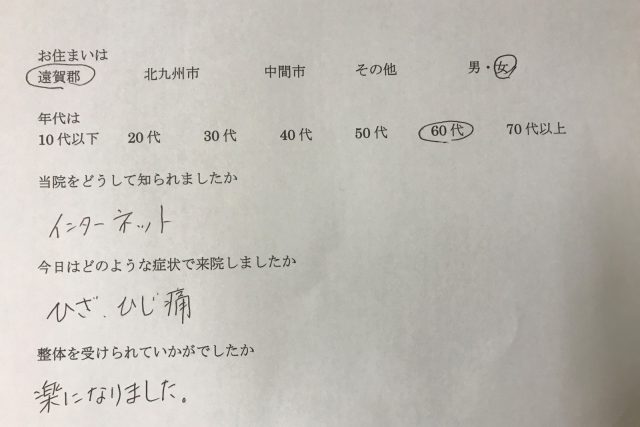 お住まいは
遠賀郡 北九州市 中間市 その他 男・女
年代は
10代以下 20代 30代 40代 50代 60代 70代以上
当院をどうして知られましたか
インターネット
今日はどのような症状で来院しましたか
ひざ、ひじ痛
整体を受けられていかがでしたか
楽になりました。